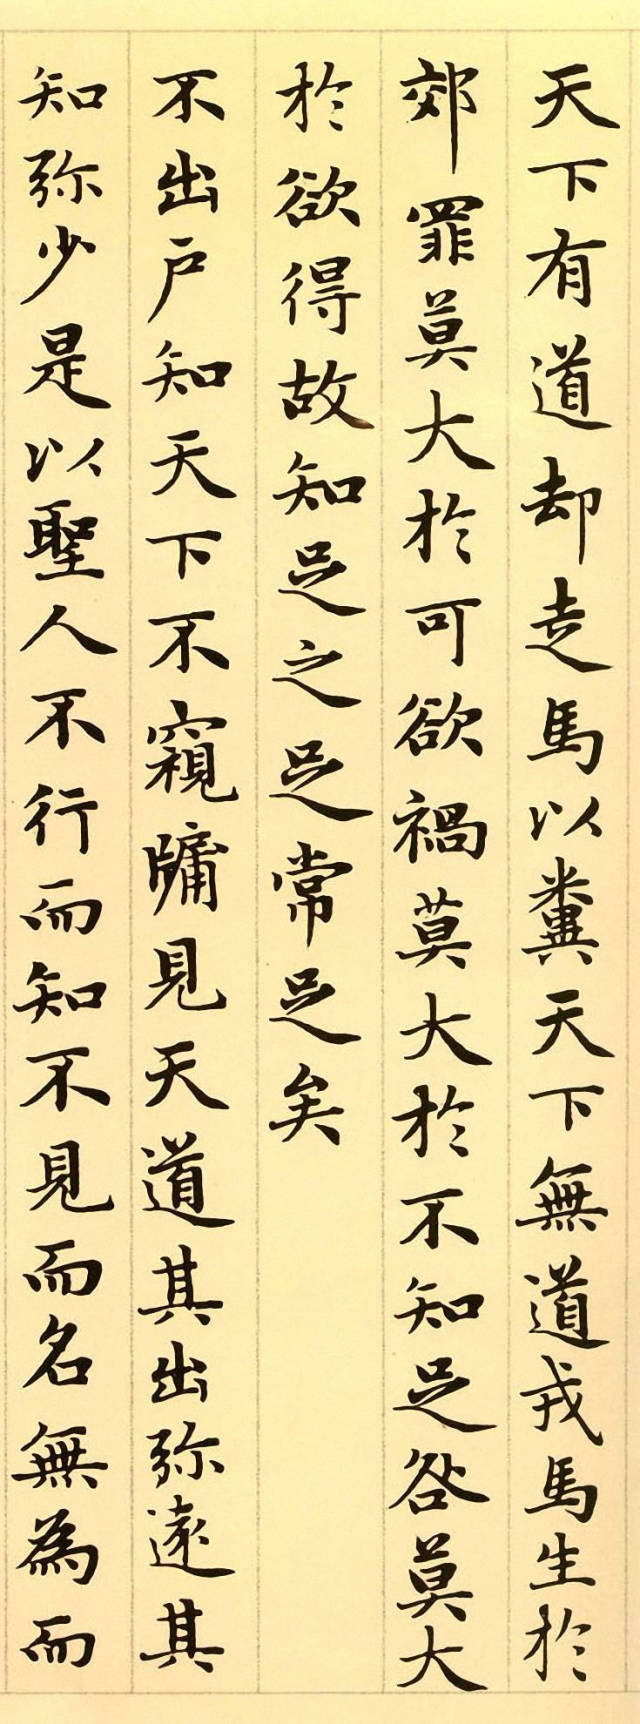 天下有道却走馬以糞天下無道戎馬生於
郊罪莫大於可欲禍莫大於不知足咎莫大
於欲得故知足之足常足矣
不出戶知天下不窺牖見天道其出弥遠其
知弥少是以聖人不行而知不見而名無為而